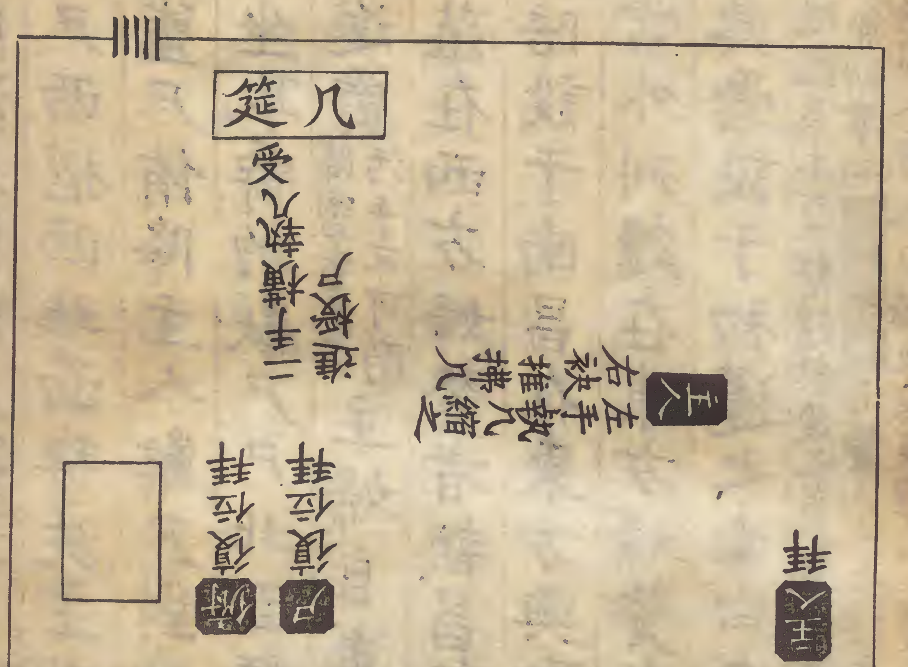 几筵
受
二手橫執几
進授尸
主人
左手執几縮之
右袂推拂几
侑
復位拜
尸
復位拜
主人
拜